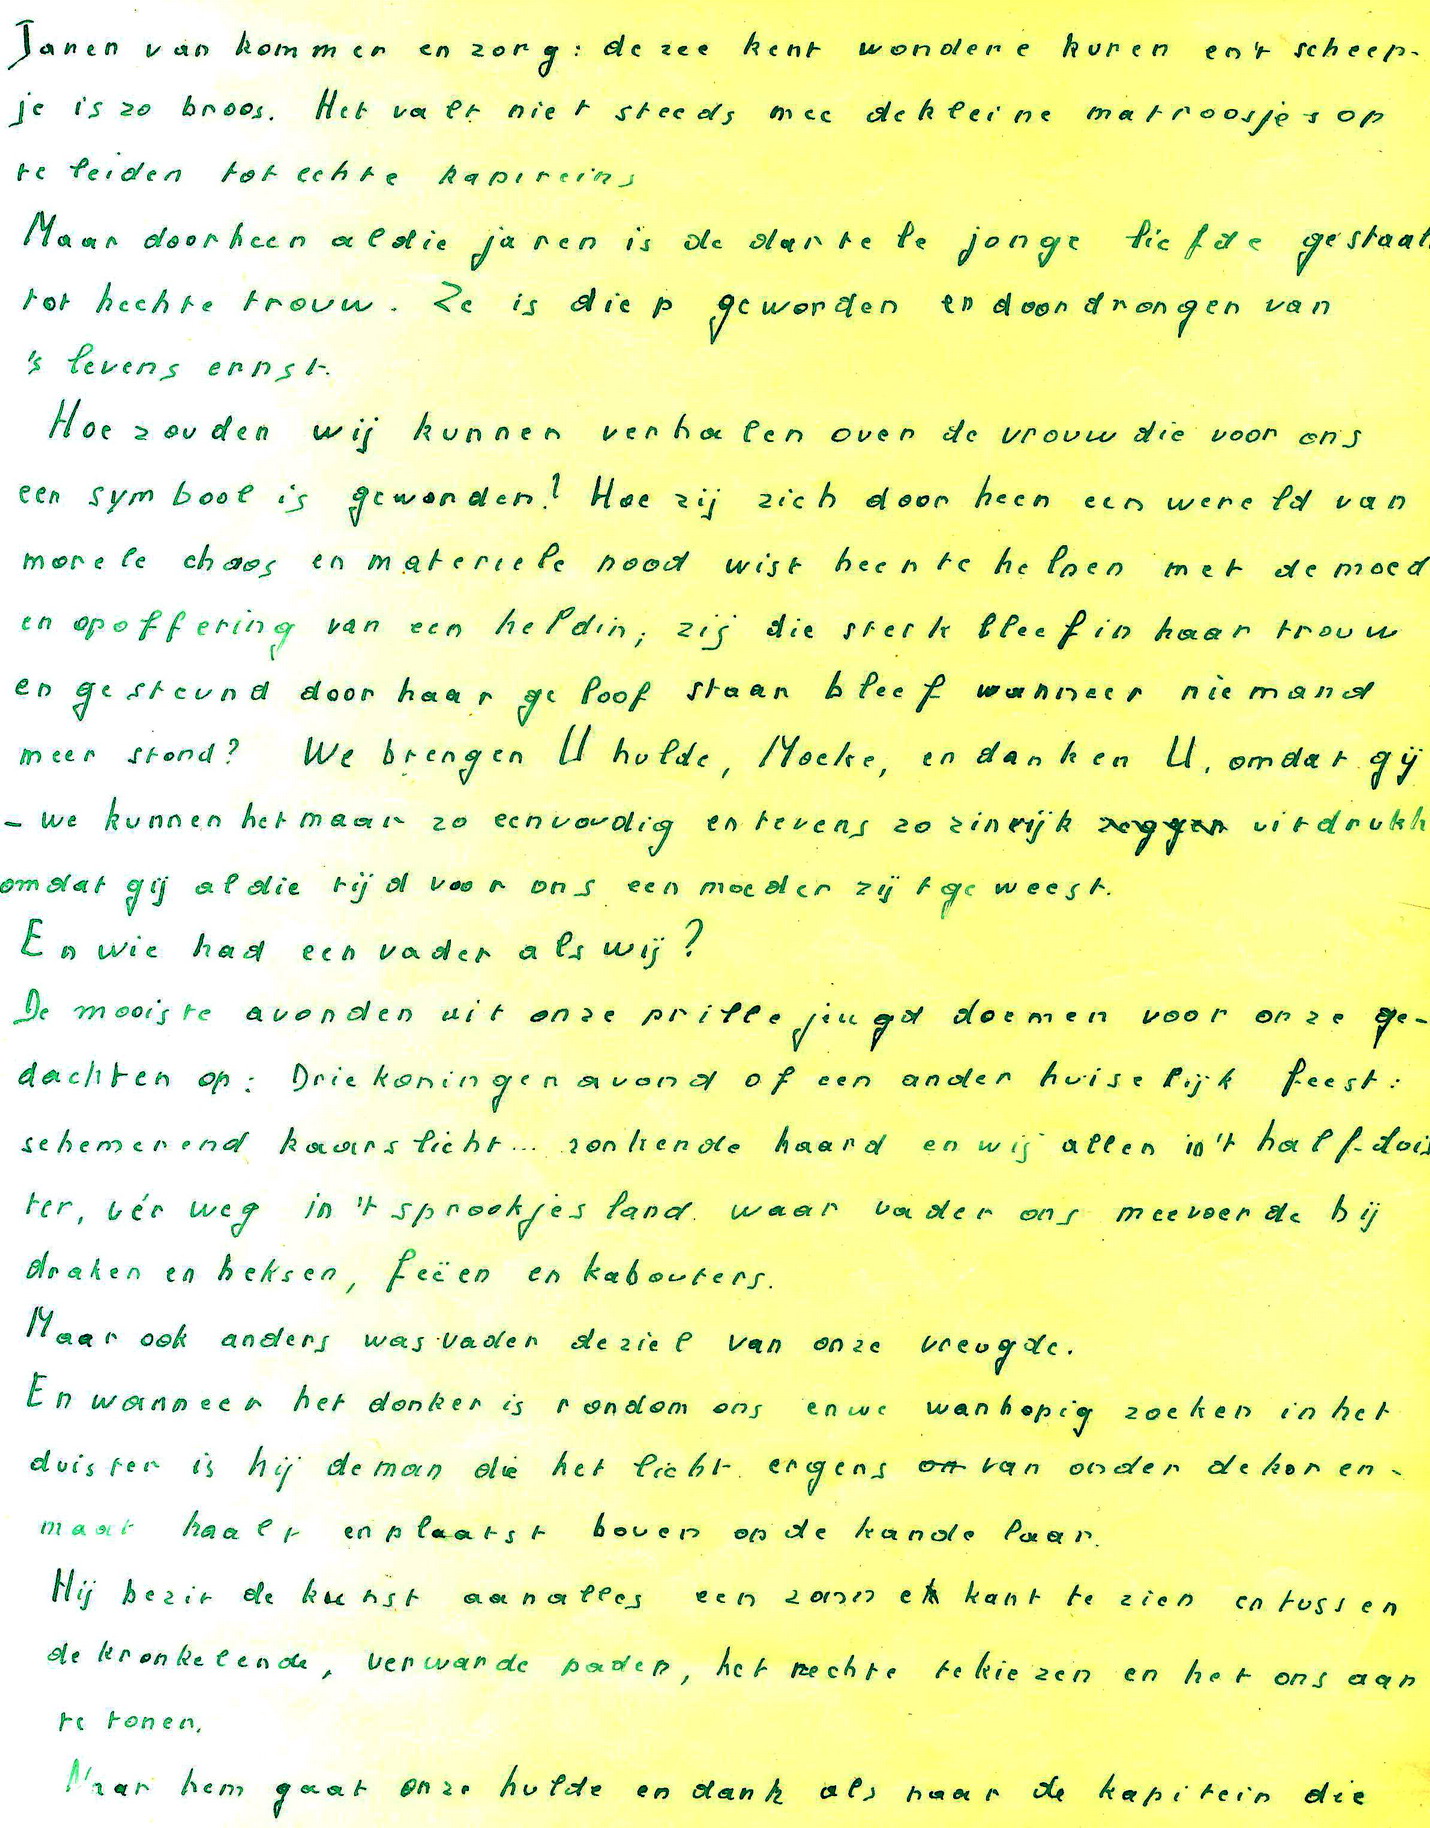 Jaren van kommer en zorg: de zee kent wondere kuren en 't scheep-
je is zo broos. Het valt niet steeds mee de kleine matroosjes op
te leiden tot echte kapiteins
Maar doorheen al die jaren is de dartele jonge liefde gestaal
tot hechte trouw. Ze is diep geworden en doordrongen van
's levens ernst.
Hoe zouden wij kunnen verhalen over de vrouw die voor ons
een symbool is geworden! Hoe zij zich door heen een wereld van
morele chaos en materiele nood wist heen te helpen met de moed
en opoffering van een heldin; zij die sterk bleef in haar trouw
en gesteund door haar geloof staan bleef wanneer niemand
meer stond? We brengen U hulde, Moeke, en danken U, omdat gij
- we kunnen het maar zo eenvoudig en tevens zo zinrijk zeggen uitdrukk
omdat gij al die tijd voor ons een moeder zijt geweest.
En wie had een vader als wij?
De mooiste avonden uit onze prille jeugd doemen voor onze ge-
dachten op: Driekoningenavond of een ander huiselijk feest:
schemerend kaarslicht... ronkende haard en wij allen in 't half-duis
ter, vér weg in 't sprookjesland waar vader ons meevoerde bij
draken en heksen, feëen en kabouters.
Maar ook anders was vader de ziel van onze vreugde.
En wanneer het donker is rondom ons en we wanhopig zoeken in het
duister is hij de man die het licht ergens on van onder de koren-
maat haalt en plaatst boven op de kandelaar.
Hij bezit de kunst aan alles een zonnek kant te zien en tussen
de kronkelende, verwarde paden, het rechte te kiezen en het ons aan
te tonen.
Naar hem gaat onze hulde en dank als naar de kapitein die